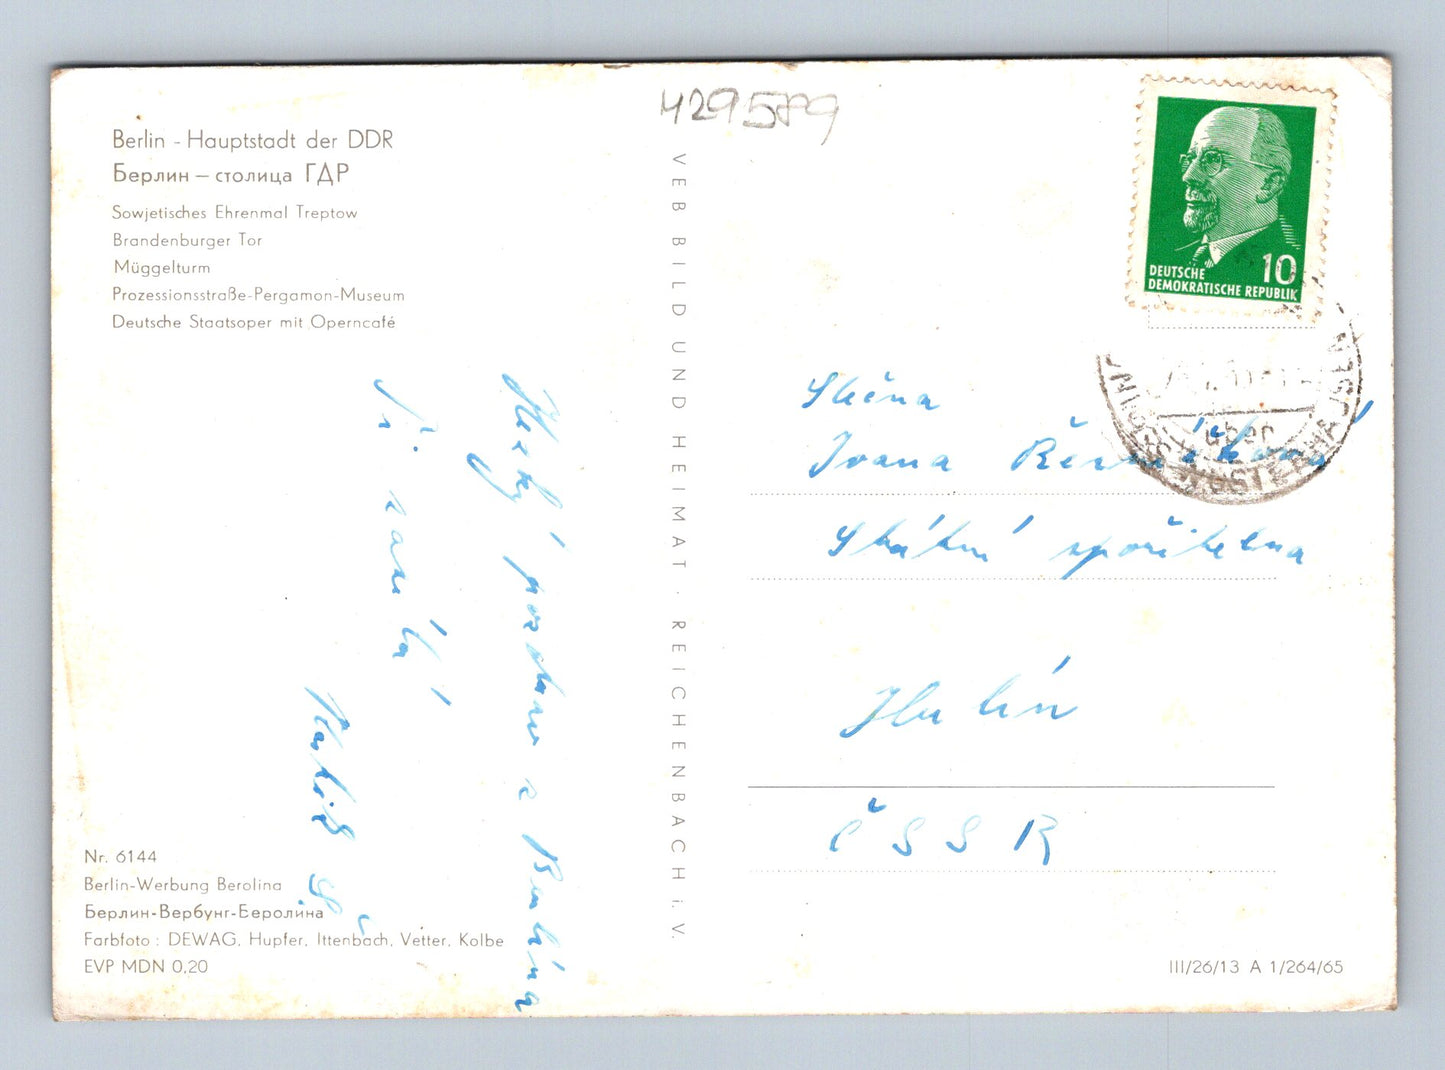 429589
Berlin - Hauptstadt der DDR
Берлин — столица ГДР
Sowjetisches Ehrenmal Treptow
Brandenburger Tor
Müggelturm
Prozessionsstraße-Pergamon-Museum
Deutsche Staatsoper mit Operncafé
Hezký pozdrav z Berlína
Nr. 6144
Berlin-Werbung Berolina
Берлин-Вербунг-Беролина
Farbfoto : DEWAG, Hupfer, Ittenbach, Vetter, Kolbe
EVP MDN 0,20
VEB BILD UND HEIMAT · REICHENBACH i. V.
DEUTSCHE
DEMOKRATISCHE REPUBLIK
10
über
Slečna
Ivana
Státní spořitelna
Hulín
ČSSR
III/26/13 A 1/264/65